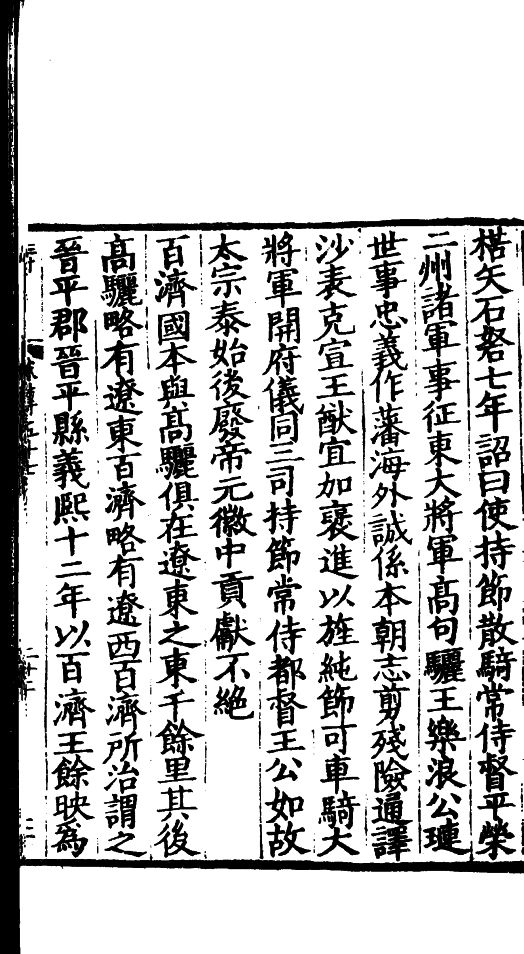 楛矢石砮七年詔曰使持節散騎常侍督平榮
二州諸軍事征東大將軍高句驪王樂浪公璉
世事忠義作藩海外誠係本朝志剪殘險通譯
沙表克宣王猷宜加襃進以旌純節可車騎大
將軍開府儀同三司持節常侍都督王公如故
太宗泰始後廢帝元徽中貢獻不絶
百濟國本與髙驪俱在遼東之東千餘里其後
髙驪略有遼東百濟略有遼西百濟所治謂之
晉平郡晉平縣義熙十二年以百濟王餘映爲